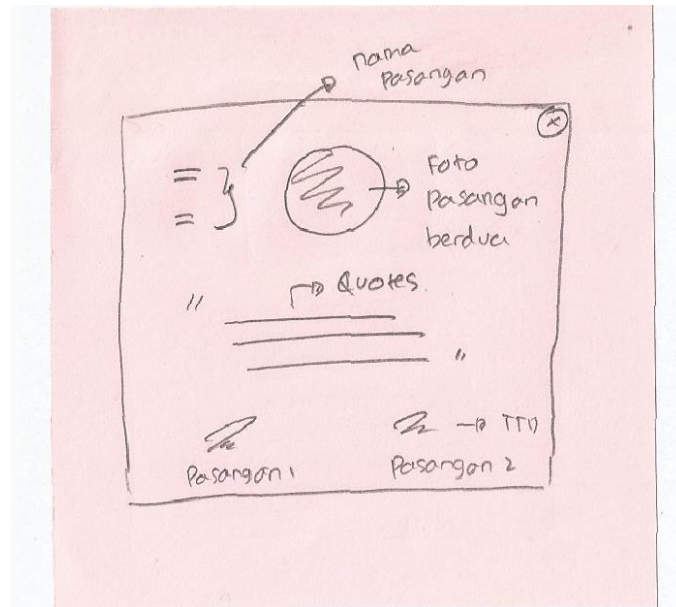 nama
pasangan
x
Foto
Pasangan
berdua
" Quotes.
"
TTD
Pasangan 1
Pasangan 2